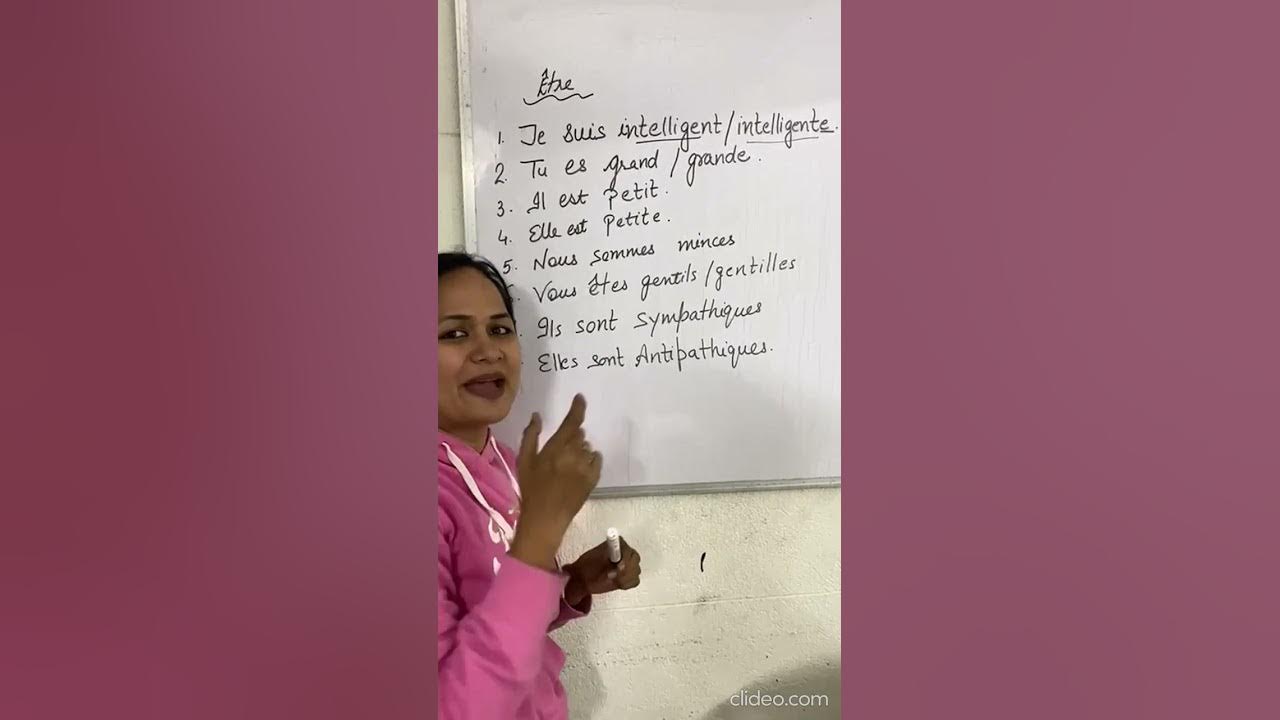 Être
1. Je suis intelligent/intelligente.
2. Tu es grand/grande.
3. Il est Petit.
4. Elle est Petite.
5. Nous sommes minces
Vous êtes gentils/gentilles
Ils sont Sympathiques
Elles sont Antipathiques.
clideo.com